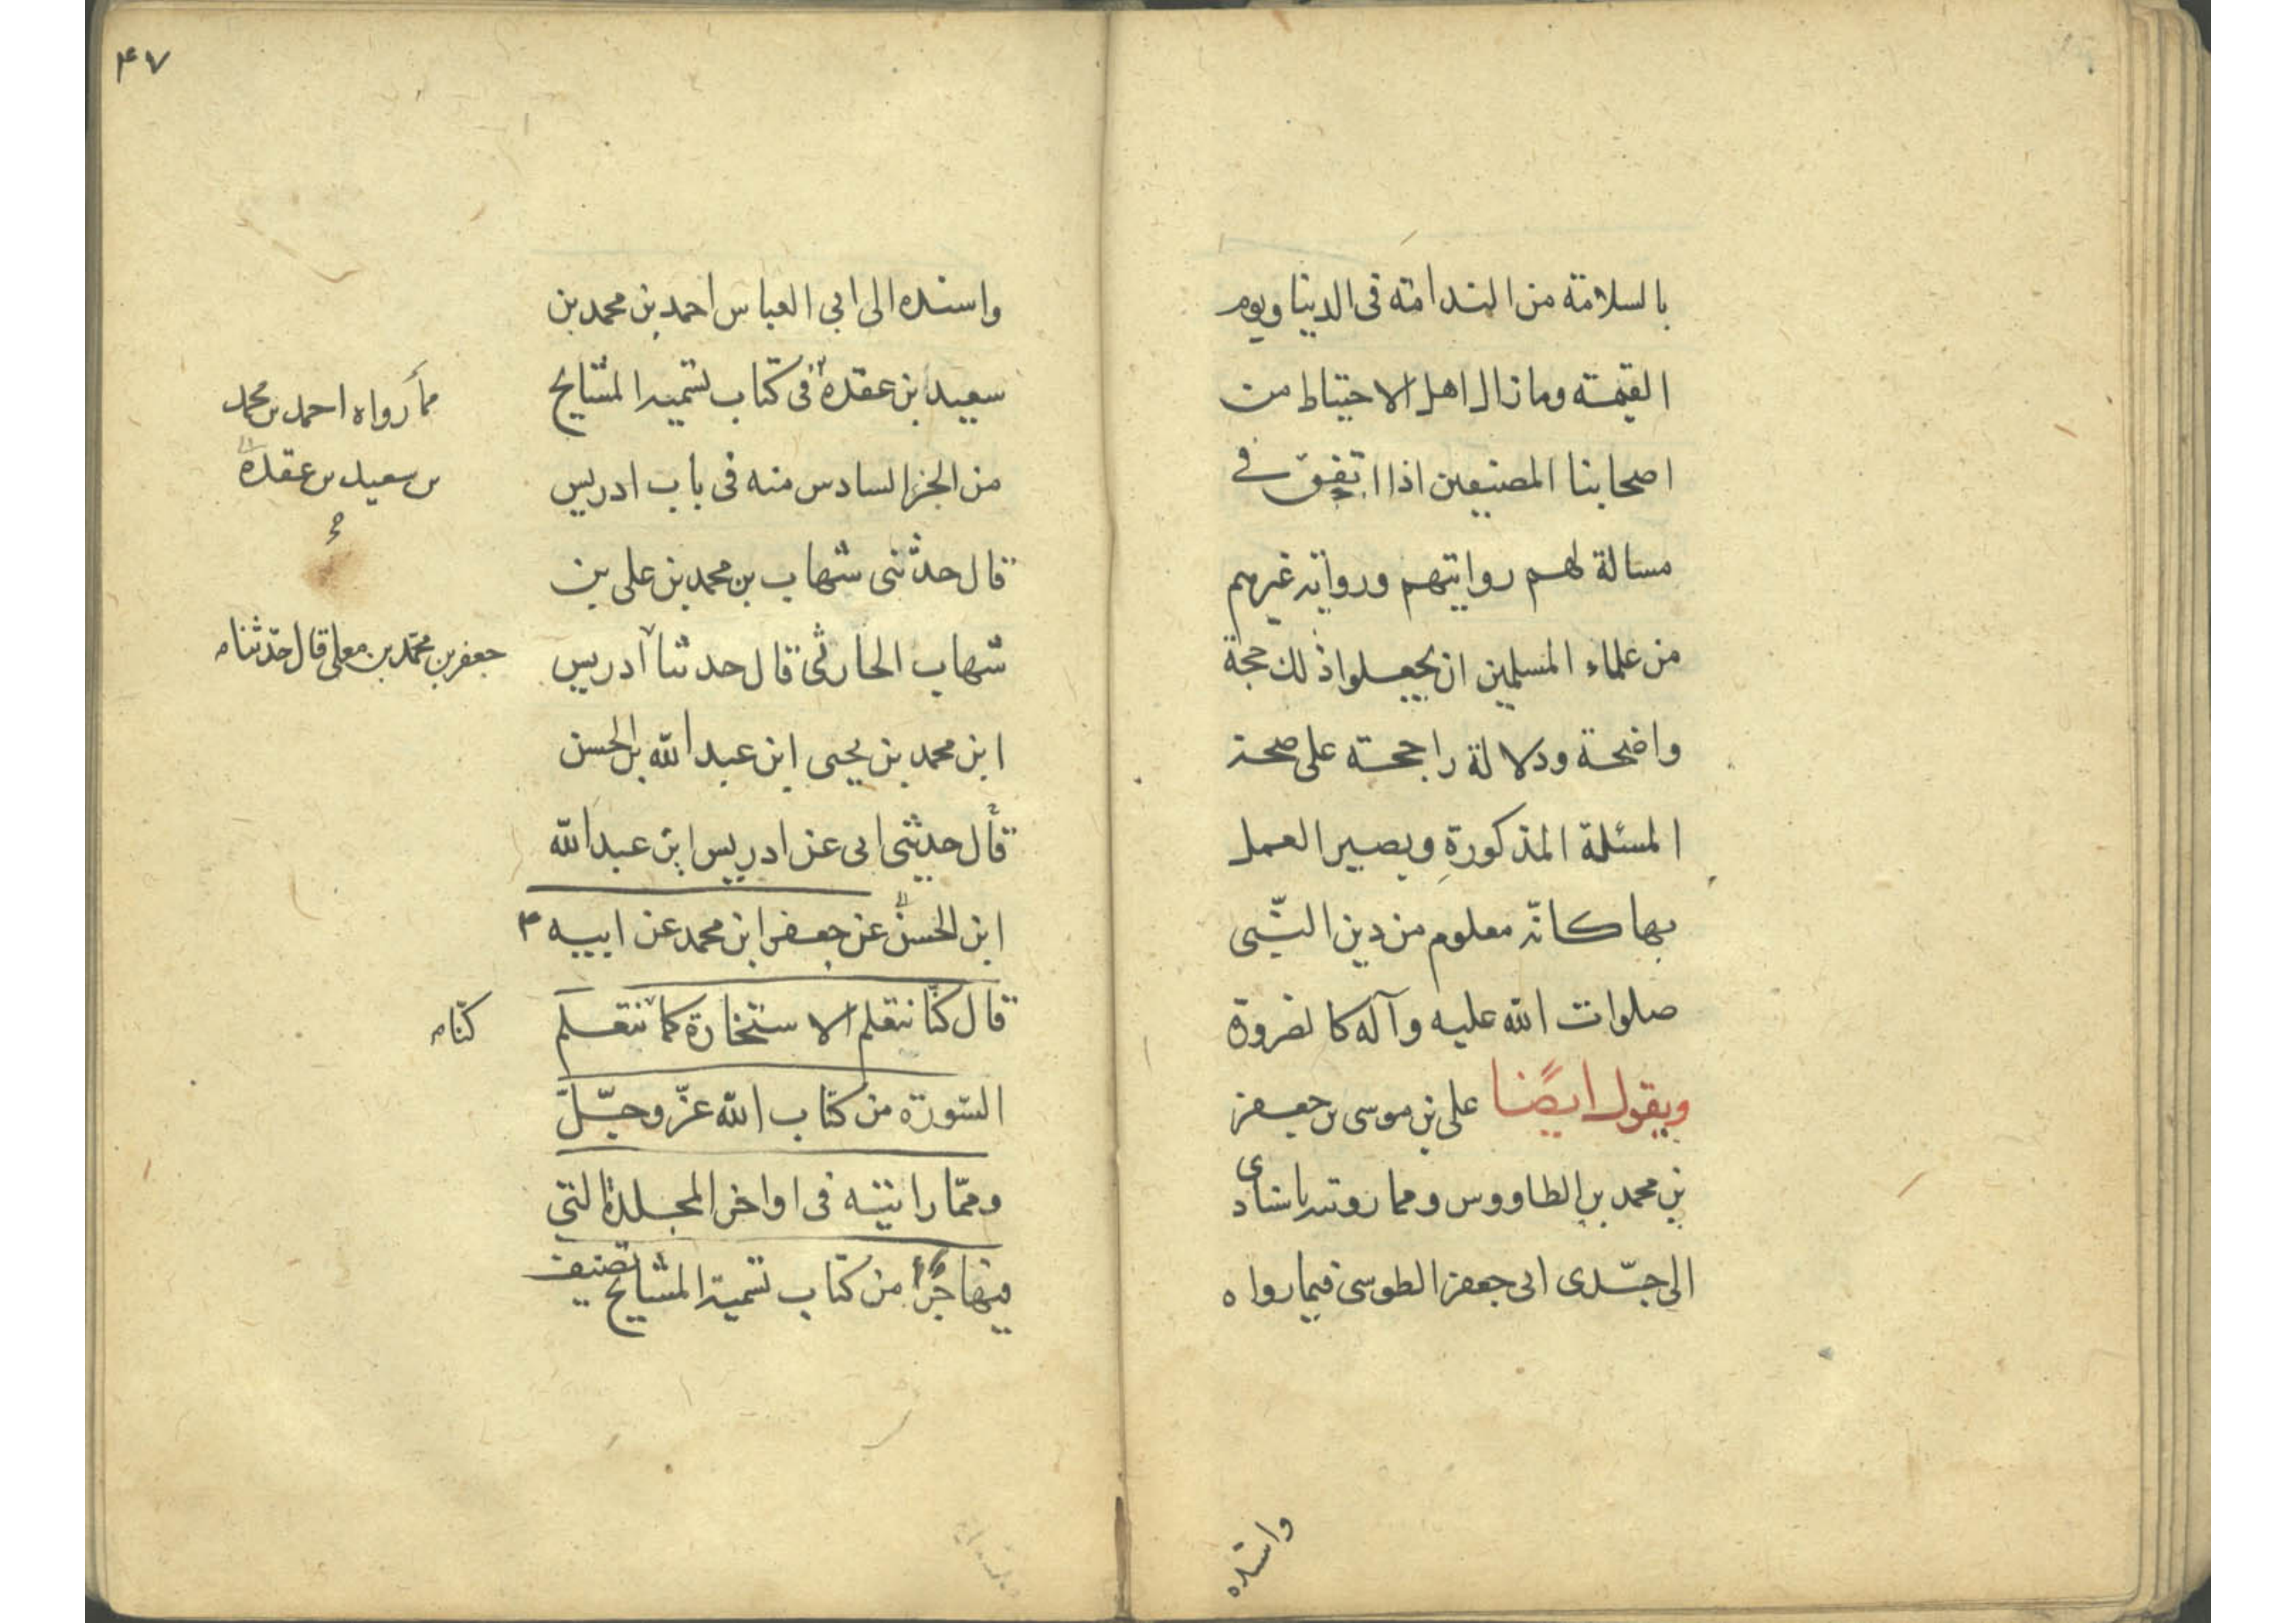 بالسلامة من الندامته فى الدينا ويوم
القيمته وما زال اهل الاحتياط من
اصحابنا المصنفين اذا اتفق فے
مسالة لهم روايتهم ورواية غيرهم
من علماء المسلمين ان يجعلوا ذلك حجة
واضحة ودلالة راجحته على صحة
المسئلة المذكورة ويصير العمل
بها كانّه معلوم من دين النّبى
صلوات الله عليه وآله كالضرورة
ويقول ايضًا على بن موسى بن جعفر
بن محمد بن الطاووس ومما رويته باسنادى
الى جدّى ابى جعفر الطوسى فيما رواه
واسنده
۴۷
واسنده الى ابى العباس احمد بن محمد بن
سعيد ابن عقده فى كتاب تسمية المشايخ
من الجزء السادس منه فى باب ادريس
قال حدثنى شهاب بن محمد بن على بن
شهاب الحارثى قال حدثنا ادريس
ابن محمد بن يحيى ابن عبد الله بن الحسن
قال حديثنى ابى عن ادريس ابن عبد الله
ابن الحسن عن جعفر ابن محمد عن ابيه ۴
قال كنّا نتعلم الاستخارة كما نتعلم
السّورة من كتاب الله عزّ وجلّ
وممّا رايته فى اواخر المجلدة التى
فيها جزأ من كتاب تسمية المشايخ تصنيف
مما رواه احمد بن محمد
بن سعيد بن عقدة
جعفر بن محمّد بن معلى قال حدّثنا م
كنّا م